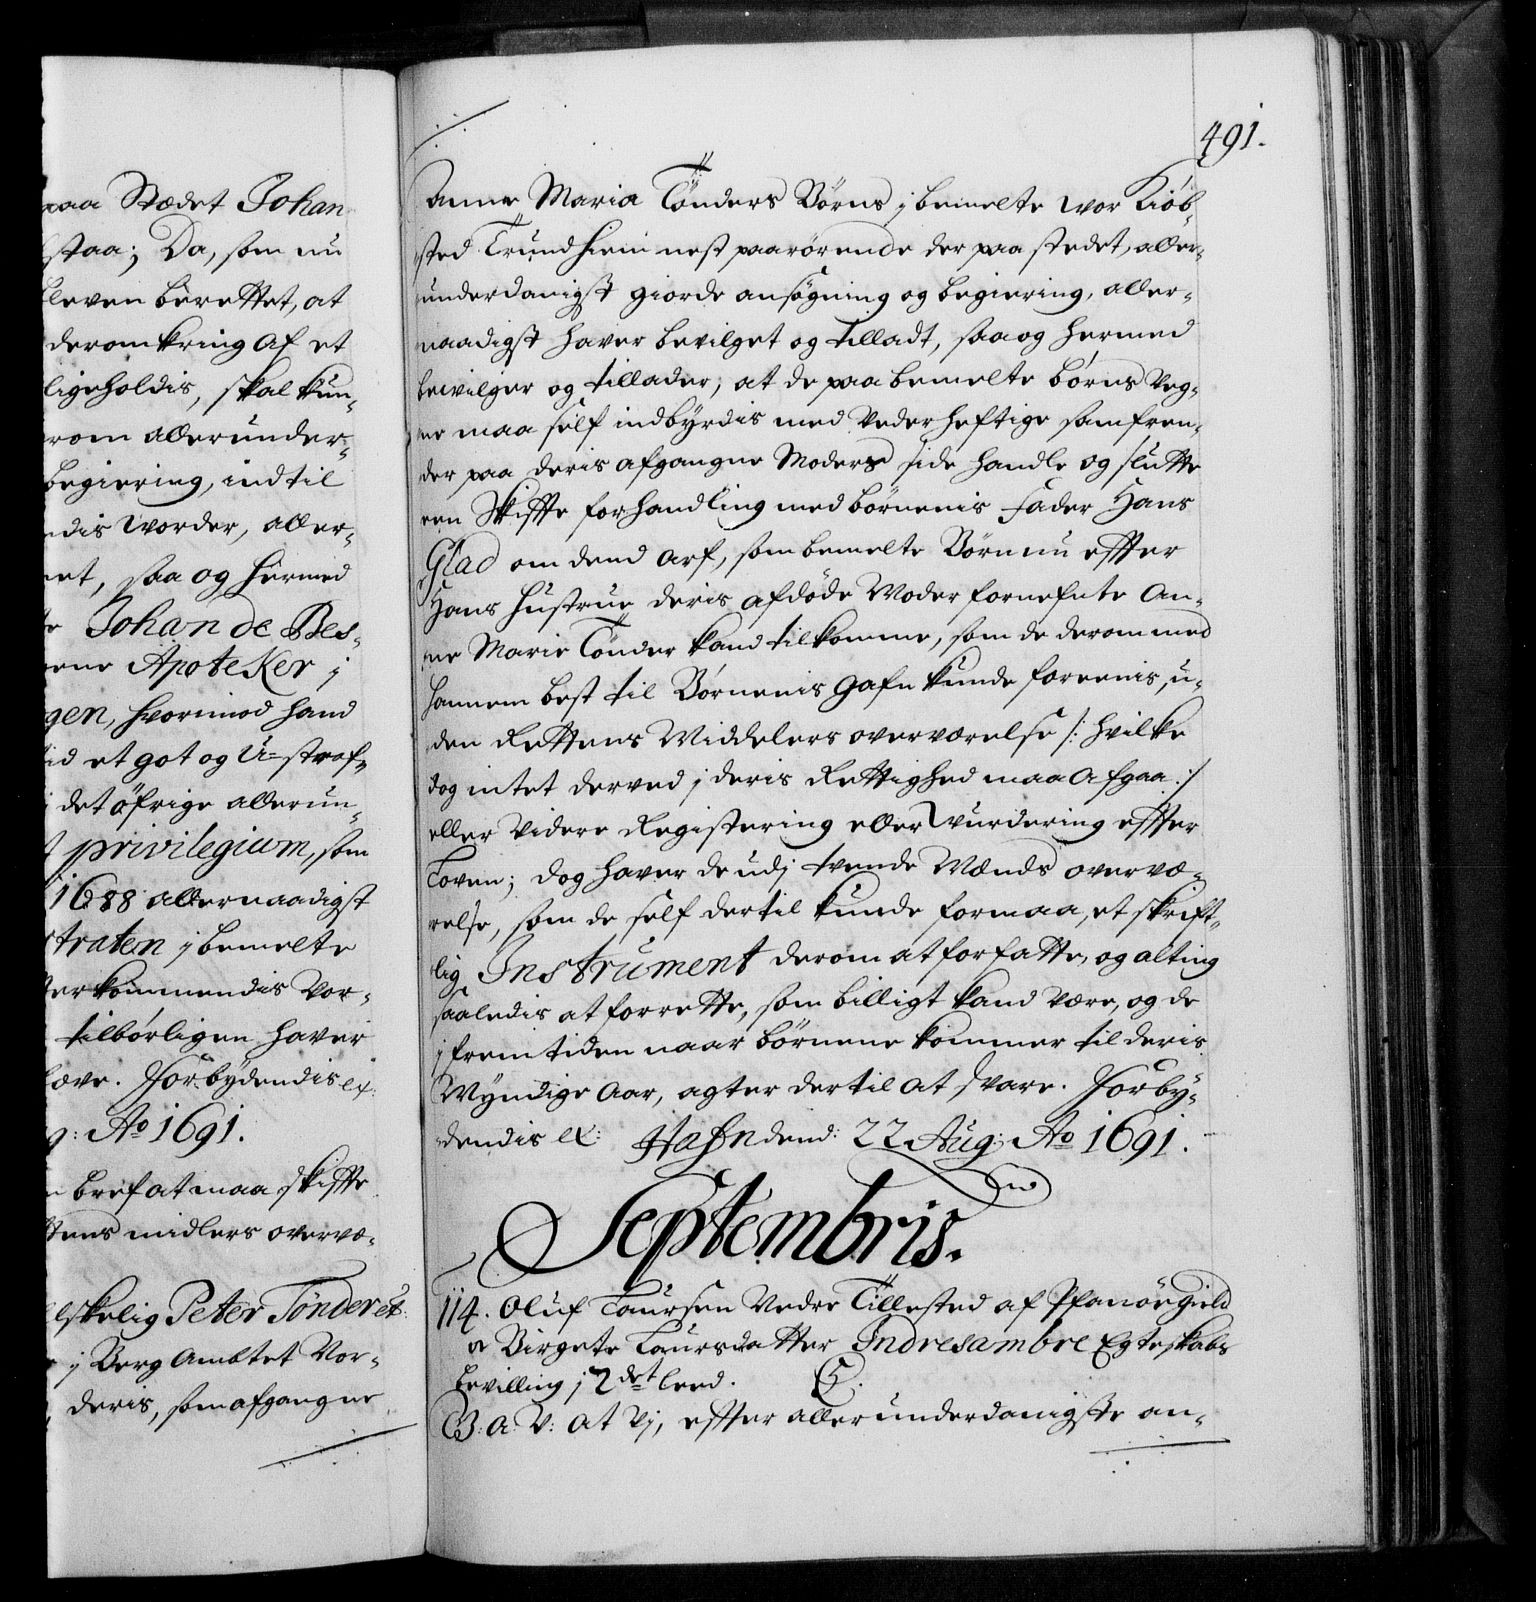 paa Stædet Johan
staa; Da, som nu
bleven berettet, at
deromkring af et
ligeholdis, skal kun-
rom allerunder-
begiering, indtil
ndis worder, aller-
et, saa og hermed
Johan de Bes-
ene Apoteker j
gen, hvorimod hand
tid et got og U-straf-
det øfrige allerun-
privilegium, som
1688 allernaadigst
straten j bemelte
derkommendis Vor-
tilbørligen haver
lave. Forbydendis ex:
g: Ao 1691.
bref at maa skiffte
ttens midlers overvæ-
lskelig Peter Tønder etc
j Berg Ambtet Vor-
deris, som afgangne
491.
Anne Maria Tønders Børns j bemelte wor Kiøb-
sted Trundhiem nest paarørende der paa stedet, aller-
underdanigst giorde ansøgning og begiering, aller-
naadigst haver bevilget og tilladt, saa og hermed
bevilger og tillader, at de paa bemelte børns Veg-
ne maa self indbyrdis med Vederheftige samfren-
der paa deris afgangne Moders side handle og slutte
een Skiffte forhandling med børnenis fader Hans
Glad om dend arf, som bemelte Børn nu effter
Hans Hustrue deris afdøde Moder fornefnte An-
ne Marie Tønder kand tilkomme, som de derom med
hannem best til Børnenis Gafn kunde foreenis, u-
den Rettens Middelers overværelse /: hvilke
dog intet derved j deris Rettighed maa Afgaa :/
eller Videre Registering eller Wurdering effter
Loven; dog haver de udj tvende Mænds overvæ-
relse, som de self dertil kunde formaa, et skrift-
lig Instrument derom at forfatte, og alting
saaledis at forrette, som billigt kand være, og de
j fremtiden naar børnene kommer til deris
Myndige Aar, agter dertil at svare. Forby-
dendis ex: Hafn dend: 22 Aug: Ao 1691.
Septembris.
114. Oluf Laursen Nedre Tillested af Ofanøe Gield
a Birgete Laursdatter Indresambre Egteskabs
bevilling j 2det leed. C5.
G: a: V: at Vj, effter allerunderdanigste an-